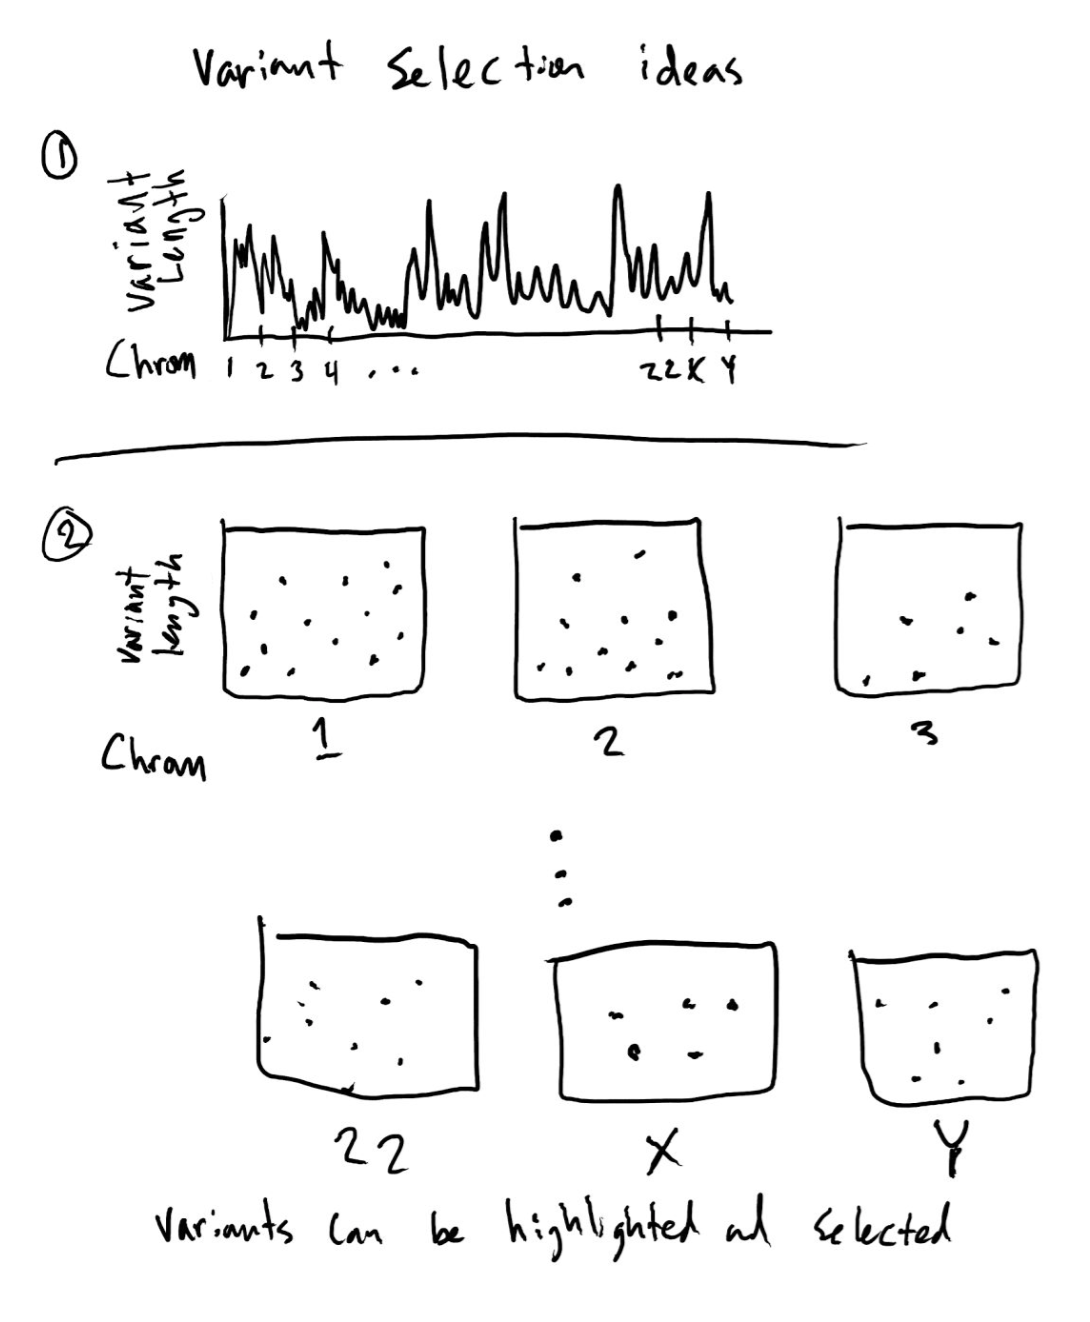 Variant Selection ideas
1
Variant
Length
Chrom 1 2 3 4 ... 22 X Y
2
Variant
length
Chrom
1 2 3
22 X Y
Variants can be highlighted ad selected